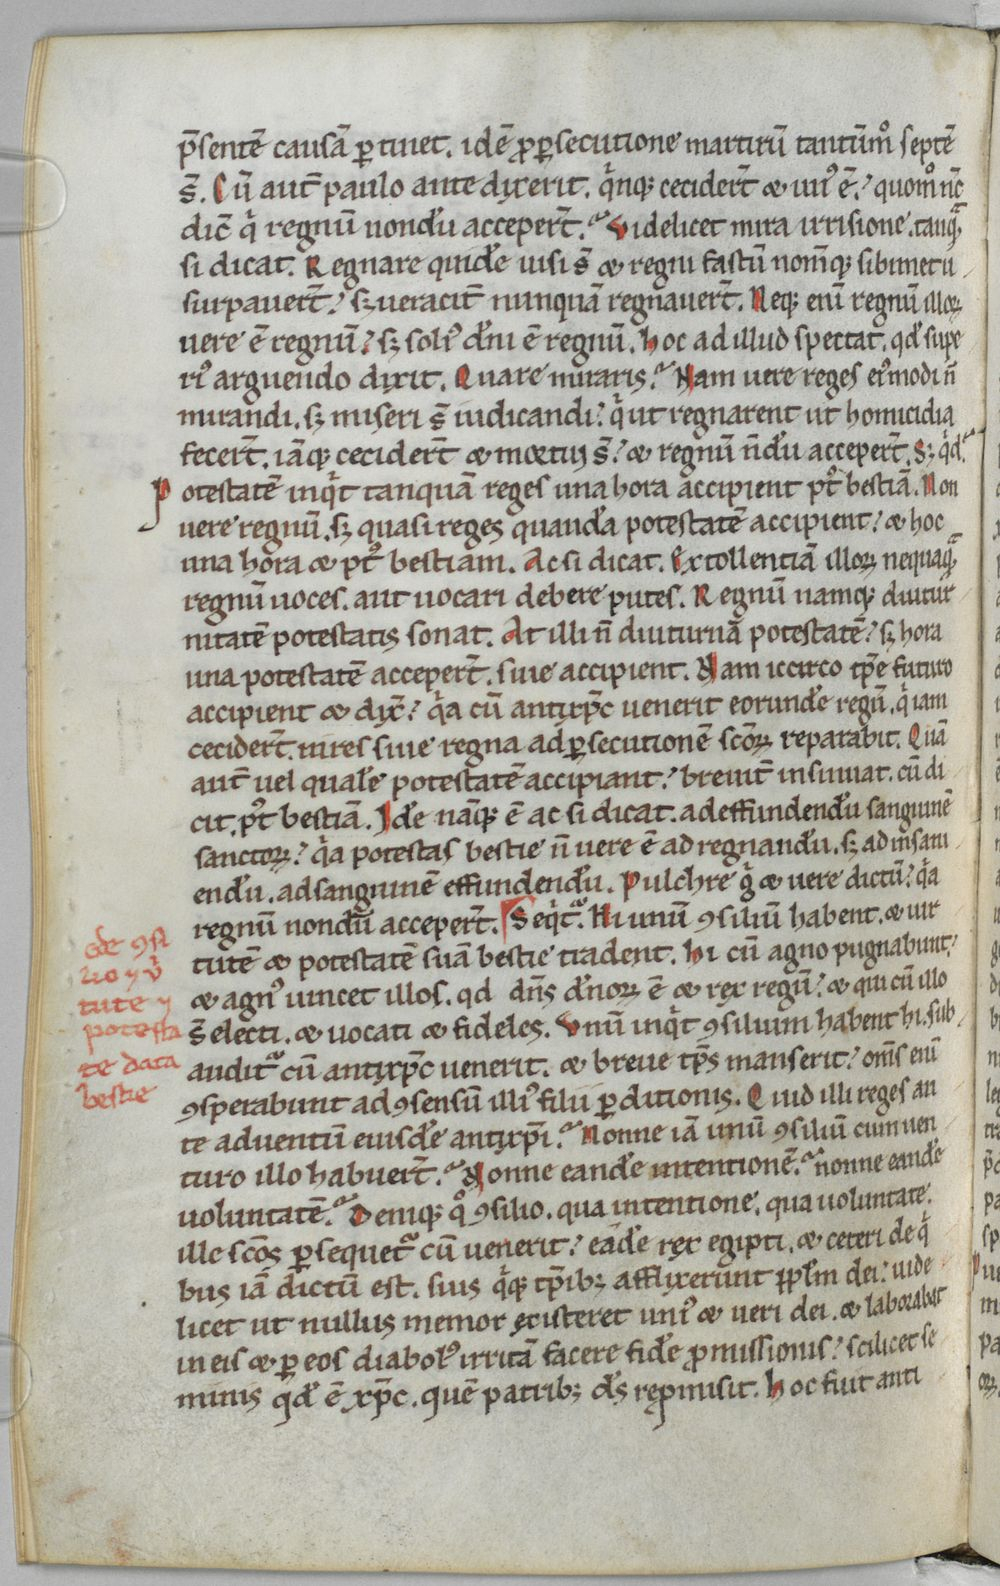 p̄sentē causā ꝑtinet. idē ꝓꝑsecutione martirū tantūm̊ septē
s̄. Cū aut̄ paulo ante dixerit. q̇nqꝫ cecider̄t ⁊ unꝰ ē.ʼ quom̊ nc̄
dic̄ q̇ regnū nondū acceper̄t. Videlicet mira irrisione. tanqꝫ̄
si dicat. Regnare quidē uisi s̄ ⁊ regni fastū nom̄qꝫ sibimet u
surpauer̄t.ʼ sꝫ ueracit̄ nunquā regnauer̄t. Neqꝫ enī regnū illoꝝ
uere ē regnū.ʼ sꝫ soliꝰ dn̄i ē regnū. hoc ad illud spectat. qd̄ supe
riꝰ arguendo dixit. Quare miraris. Nam uere reges eiꝰmodi n̄
mirandi. sꝫ miseri s̄ iudicandi.ʼ q̇ ut regnarent ut homicidia
fecer̄t. iāqꝫ cecider̄t ⁊ mortui s̄.ʼ ⁊ regnū n̄dū acceper̄t. Sꝫ qd̄.
Potestatē inq̇t tanquā reges una hora accipient pꝰt bestiā. Non
uere regnū. sꝫ quasi reges quandā potestatē accipient.ʼ ⁊ hoc
una hora ⁊ pꝰt bestiam. Ac si dicat. Extollentiā illoꝝ nequaqꝫ̄
regnū uoces. aut uocari debere putes. Regnū namqꝫ diutur
nitatē potestatis sonat. At illi n̄ diuturnā potestatē.ʼ sꝫ hora
una potestatē acceper̄t. siue accipient. Nam iccirco tp̄e futuro
accipient ⁊ dix̄.ʼ q̇a cū antixp̄c uenerit eorundē regū. q̇ iam
cecider̄t. uires siue regna ad ꝑsecutionē sc̄oꝝ reparabit. Quā
aut̄ uel qualē potestatē accipiant.ʼ breuit̄ insinuat. cū di
cit. pꝰt bestiā. Idē nāqꝫ ē ac si dicat. ad effundendū sanguinē
sanctoꝝ.ʼ q̇a potestas bestie n̄ uere ē ad regnandū. sꝫ ad insani
endū. ad sanguinē effundendū. Pulchre g̊ ⁊ uere dictū.ʼ q̇a
regnū nondū acceper̄t. Seq̇t̄. Hi unū ꝯsiliū habent. ⁊ uir
tutē ⁊ potestatē suā bestie tradent. hi cū agno pugnabunt.ʼ
⁊ agnꝰ uincet illos. qd dn̄s dn̄oꝝ ē ⁊ rex regū.ʼ ⁊ qui cū illo
s̄ electi. ⁊ uocati ⁊ fideles. Vnū inq̇t ꝯsilium habent hi. sub
audit̄ cū antixp̄c uenerit. ⁊ breue tp̄s manserit.ʼ om̄s enī
ꝯsperabunt ad ꝯsensū illiꝰ filii ꝑditionis. Quid illi reges an
te aduentū eiusdē antixp̄i. Nonne iā unū ꝯsiliū cum uen
turo illo habuer̄t. Nonne eandē intentionē. nonne eandē
uoluntatē. Deniqꝫ q̊ ꝯsilio. qua intentione. qua uoluntate.
ille sc̄os ꝑsequet̄ cū uenerit.ʼ eadē rex egipti. ⁊ ceteri de q̇
bus iā dictū est. suis q̇qꝫ tp̄ibꝫ afflixerunt ppl̄m dei.ʼ uide
licet ut nullus memor existeret uniꝰ ⁊ ueri dei. ⁊ laborabat
in eis ⁊ ꝑ eos diabolꝰ irritā facere fidē ꝓmissionis.ʼ scilicet se
minis qd̄ ē xp̄c. quē patribꝫ ds̄ repmisit. hoc fuit anti
de ꝯsi
lio ⁊ v̇
tute ⁊
potesta
te data
bestie